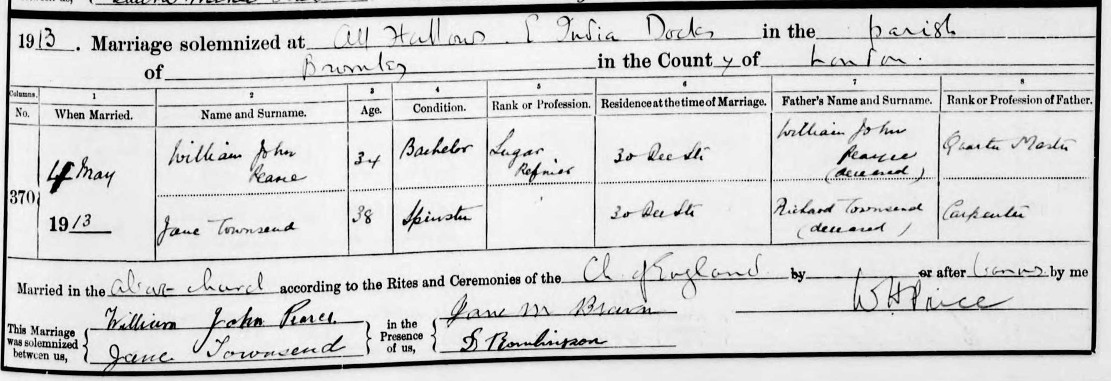 1913. Marriage solemnized at All Hallows E India Docks in the parish
of Bromley in the County of London.
Columns. 1 2 3 4 5 6 7 8
No. When Married. Name and Surname. Age. Condition. Rank or Profession. Residence at the time of Marriage. Father's Name and Surname. Rank or Profession of Father.
370 4 May 1913
William John Pearce 34 Bachelor Sugar Refiner 30 Dee Str William John Pearce (deceased) Quarter Master
Jane Townsend 38 Spinster 30 Dee Str Richard Townsend (deceased) Carpenter
Married in the above church according to the Rites and Ceremonies of the Ch of England by or after banns by me
This Marriage was solemnized between us, William John Pearce Jane Townsend in the Presence of us, Jane M Brown S Tomlinson W H Price